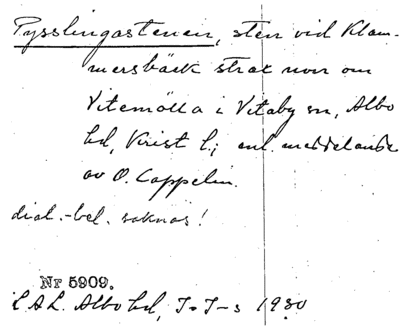 Pysslingastenen, sten vid Klam-
mersbäck strax norr om
Vitemölla i Vitaby sn, Albo
hd, Krist l; enl. meddelande
av O. Cappelin.
dial.-bel. saknas!
Nr 5909.
LAL. Albo hd, I-I-s 1930